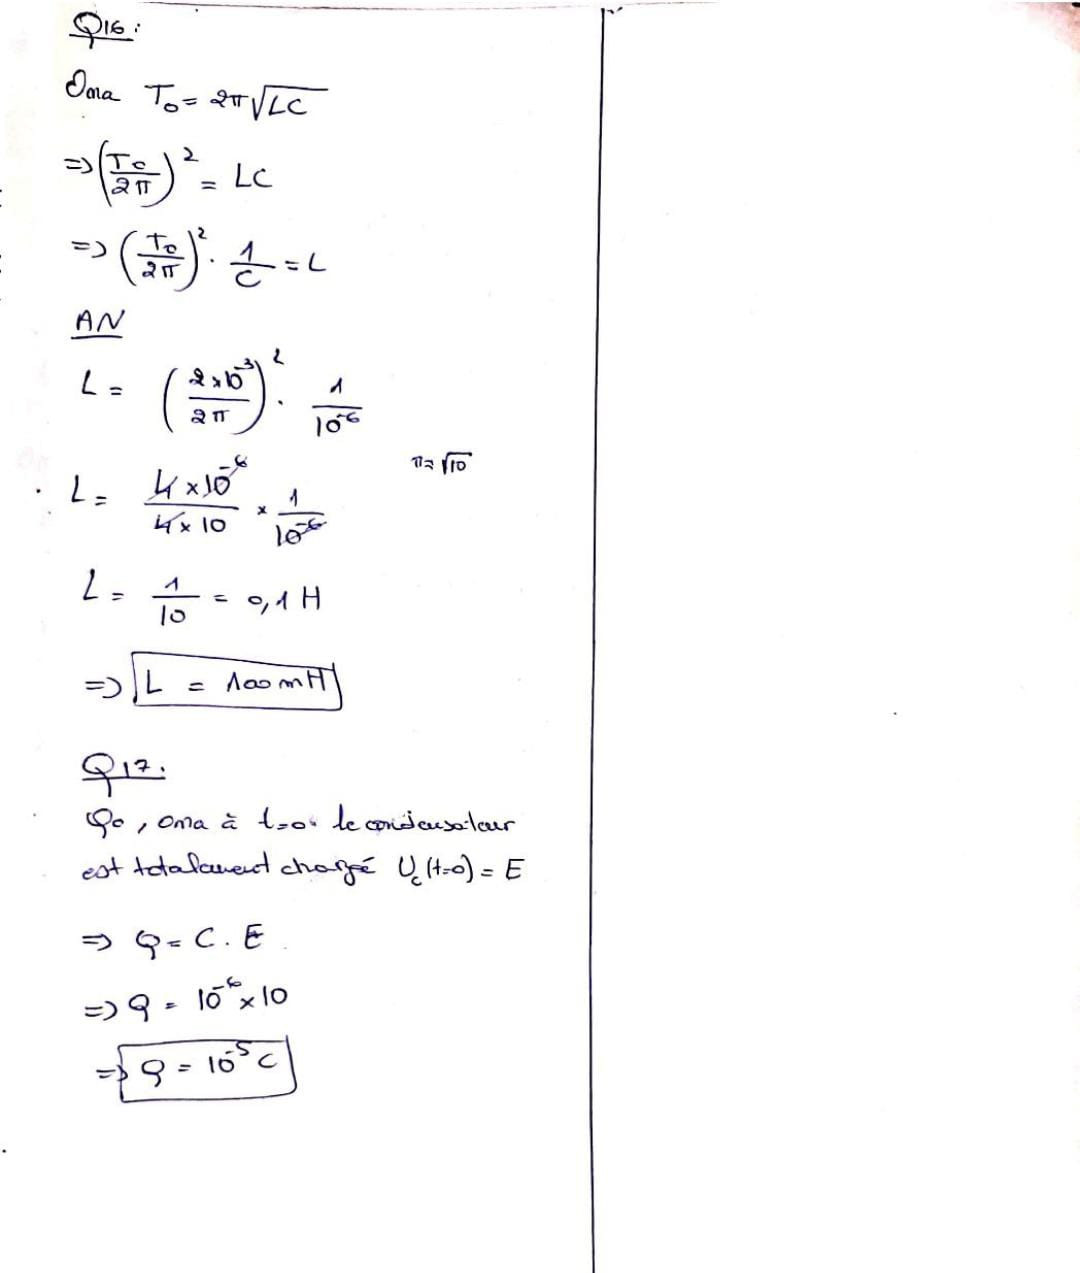 Q16:
On a T₀ = 2π√LC
=> (T₀/2π)² = LC
=> (T₀/2π)² · 1/C = L
AN
L = (2×10⁻³/2π)² · 1/10⁻⁶
π=√10
L = 4×10⁻⁶/4×10 × 1/10⁻⁶
L = 1/10 = 0,1 H
=> L = 100 mH
Q17:
Q₀, on a à t=0 le condensateur
est totalement chargé Uc(t=0) = E
=> Q = C . E
=> Q = 10⁻⁶ × 10
=> Q = 10⁻⁵ C